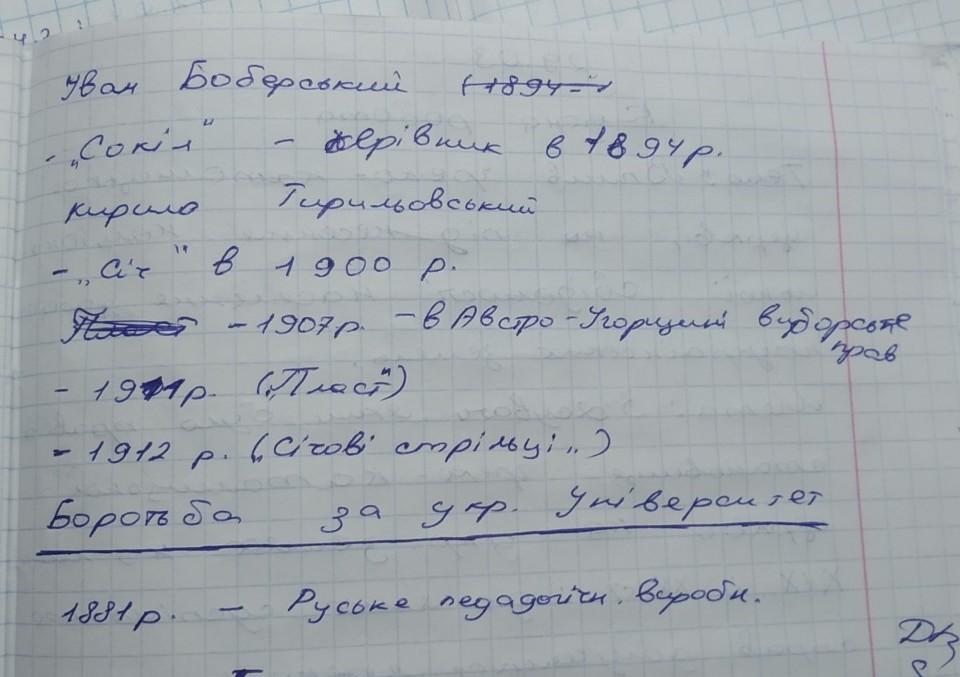 Іван Боберський (1894–)
- „Сокіл" – керівник в 1894 р.
Кирило Тирильовський
- „Січ" в 1900 р.
Пласт - 1907р. – в Австро-Угорщині виборське
прав
- 1911р. („Пласт")
- 1912 р. („Січові стрільці„)
Боротьба за укр. Університет
1881р. – Руське педадогічн. виробн.